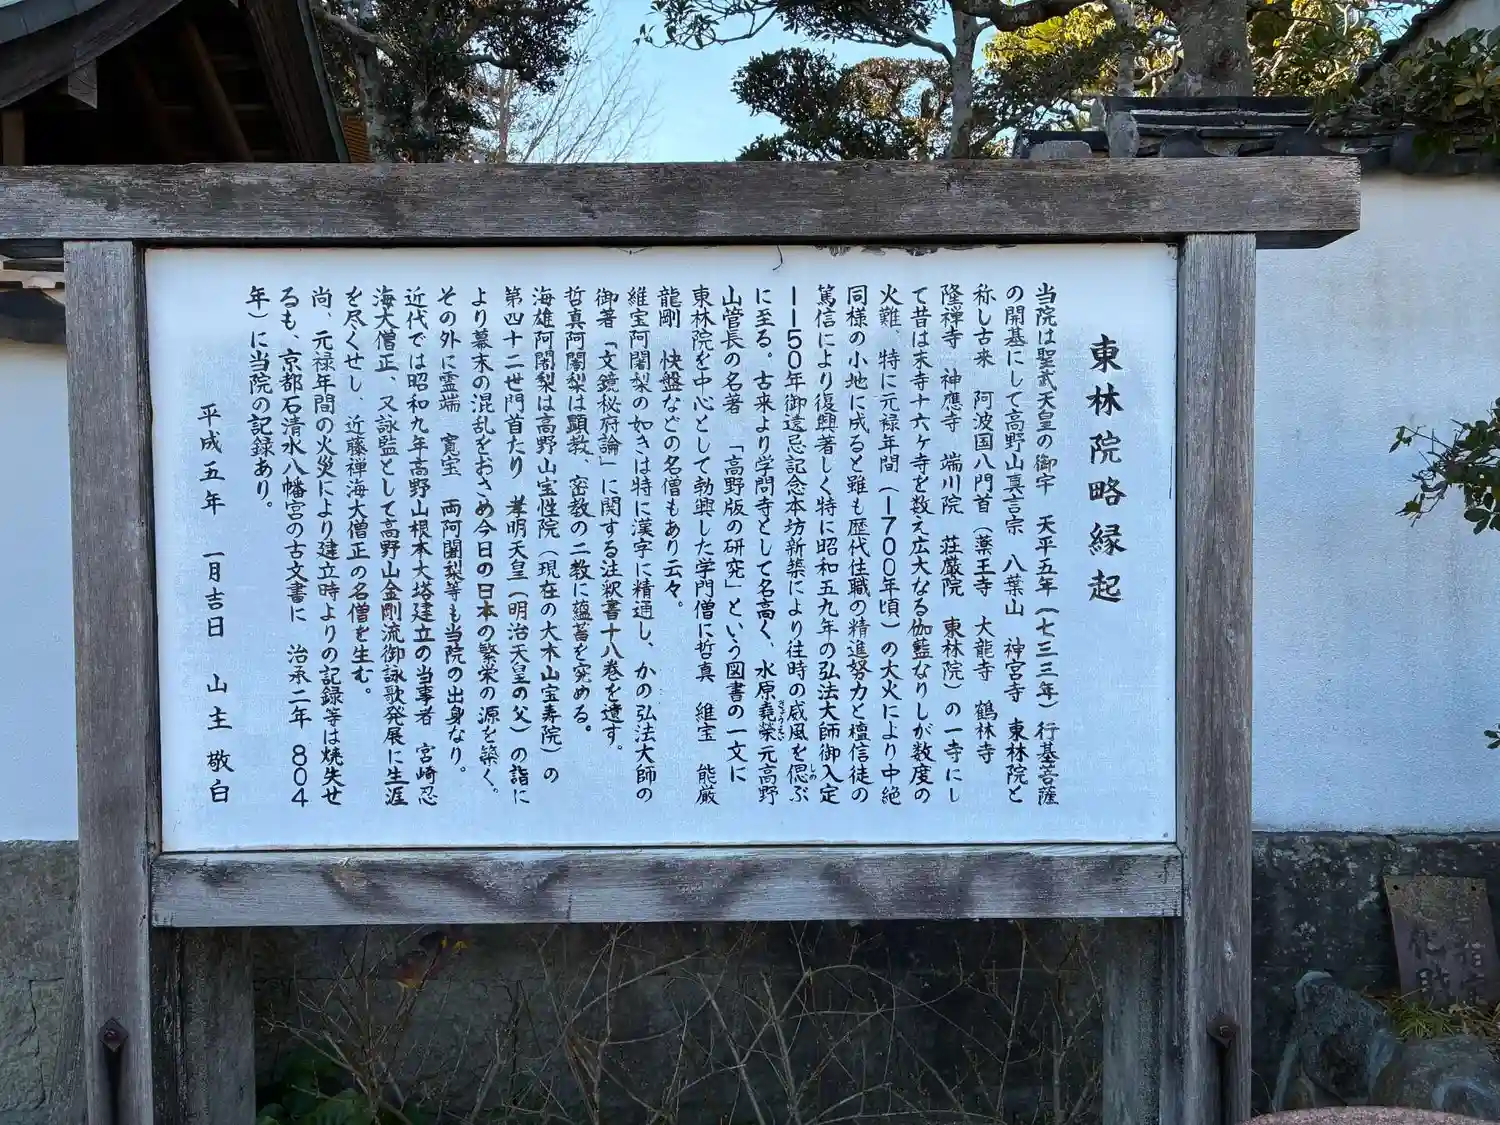 東林院略縁起
当院は聖武天皇の御宇　天平五年(七三三年)行基菩薩
の開基にして高野山真言宗　八葉山　神宮寺　東林院と
称し古来　阿波国八門首(薬王寺　大龍寺　鶴林寺
隆禅寺　神應寺　端川院　荘厳院　東林院)の一寺にし
て昔は末寺十六ヶ寺を数え広大なる伽藍なりしが数度の
火難、特に元禄年間(1700年頃)の大火により中絶
同様の小地に成ると雖も歴代住職の精進努力と檀信徒の
篤信により復興著しく特に昭和五九年の弘法大師御入定
1150年御遠忌記念本坊新築により往時の威風を偲ぶ
に至る。古来より学問寺として名高く、水原堯榮元高野
山管長の名著　「高野版の研究」という図書の一文に
東林院を中心として勃興した学門僧に哲真　維宝　能厳
龍剛　快盤などの名僧もあり云々。
維宝阿闍梨の如きは特に漢字に精通し、かの弘法大師の
御著「文鏡秘府論」に関する注釈書十八巻を遺す。
哲真阿闍梨は顕教、密教の二教に蘊蓄を究める。
海雄阿闍梨は高野山宝性院(現在の大本山宝寿院)の
第四十二世門首たり　孝明天皇(明治天皇の父)の詣に
より幕末の混乱をおさめ今日の日本の繁栄の源を築く。
その外に霊端　寛宝　両阿闍梨等も当院の出身なり。
近代では昭和九年高野山根本大塔建立の当事者　宮崎忍
海大僧正、又詠監として高野山金剛流御詠歌発展に生涯
を尽くせし、近藤禅海大僧正の名僧を生む。
尚、元禄年間の火災により建立時よりの記録等は焼失せ
るも、京都石清水八幡宮の古文書に　治承二年　804
年)に当院の記録あり。
平成五年　一月吉日　山主　敬白